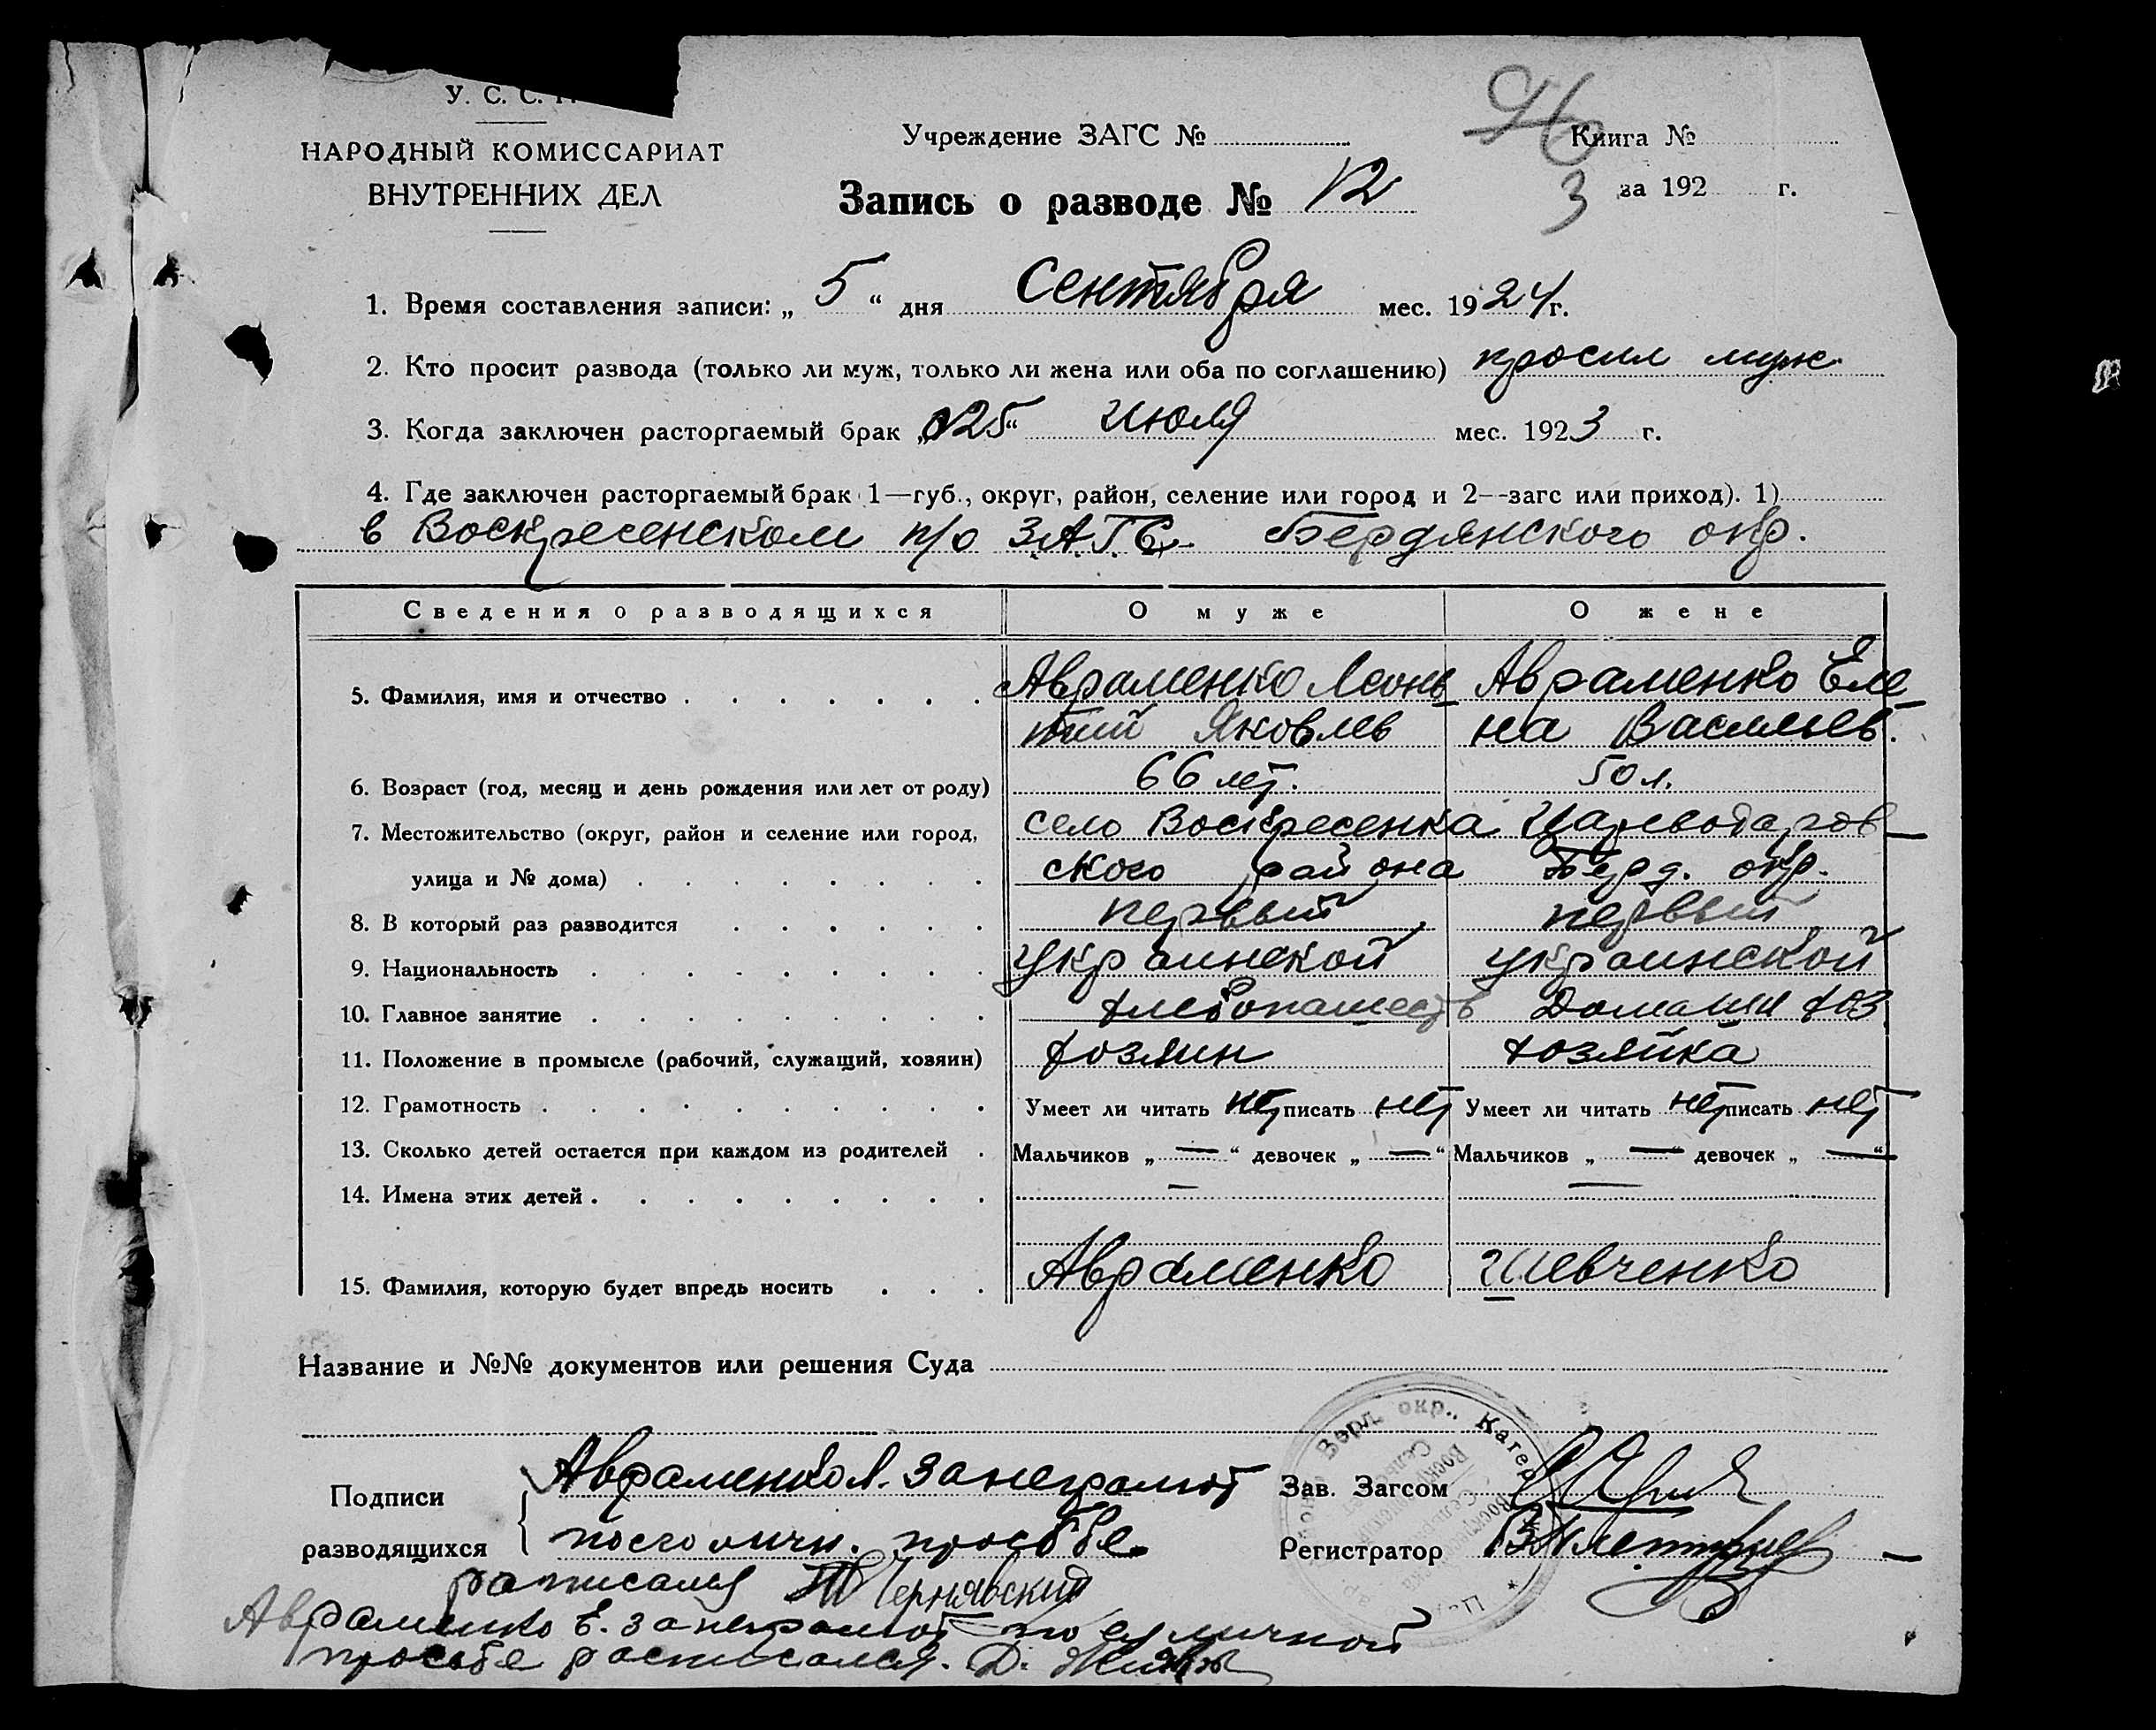 У. С. С.
НАРОДНЫЙ КОМИССАРИАТ
ВНУТРЕННИХ ДЕЛ
Учреждение ЗАГС №
96
Книга №
3 за 192 г.
Запись о разводе № 12
1. Время составления записи: „ 5 “ дня Сентября мес. 1924 г.
2. Кто просит развода (только ли муж, только ли жена или оба по соглашению) просил муж
3. Когда заключен расторгаемый брак „25“ Июля мес. 1923 г.
4. Где заключен расторгаемый брак 1—губ., округ, район, селение или город и 2—загс или приход). 1)
в Воскресенском п/о З.А.Г.С. Бердянского окр.
Сведения о разводящихся О муже О жене
5. Фамилия, имя и отчество Авраменко Леон Авраменко Еле
тий Яковлев на Васильев.
6. Возраст (год, месяц и день рождения или лет от роду) 66 лет. 50 л.
7. Местожительство (округ, район и селение или город, село Воскресенка Цареводаров
улица и № дома) ского района Берд. окр.
8. В который раз разводится первый первый
9. Национальность украинской украинской
10. Главное занятие хлебопашеств Домашн хоз
11. Положение в промысле (рабочий, служащий, хозяин) хозяин хозяйка
12. Грамотность Умеет ли читать нет писать нет Умеет ли читать нет писать нет
13. Сколько детей остается при каждом из родителей Мальчиков „ — “ девочек „ — “ Мальчиков „ — “ девочек „ — “
14. Имена этих детей — —
15. Фамилия, которую будет впредь носить Авраменко Шевченко
Название и №№ документов или решения Суда
Берд. окр., Катер
Подписи
разводящихся
Авраменко Л. за неграмот
по его личн. просьбе
расписался Чернявский
Авраменко Е. за неграмот по ея личной
просьбе расписался. Д.
Зав. Загсом
Регистратор